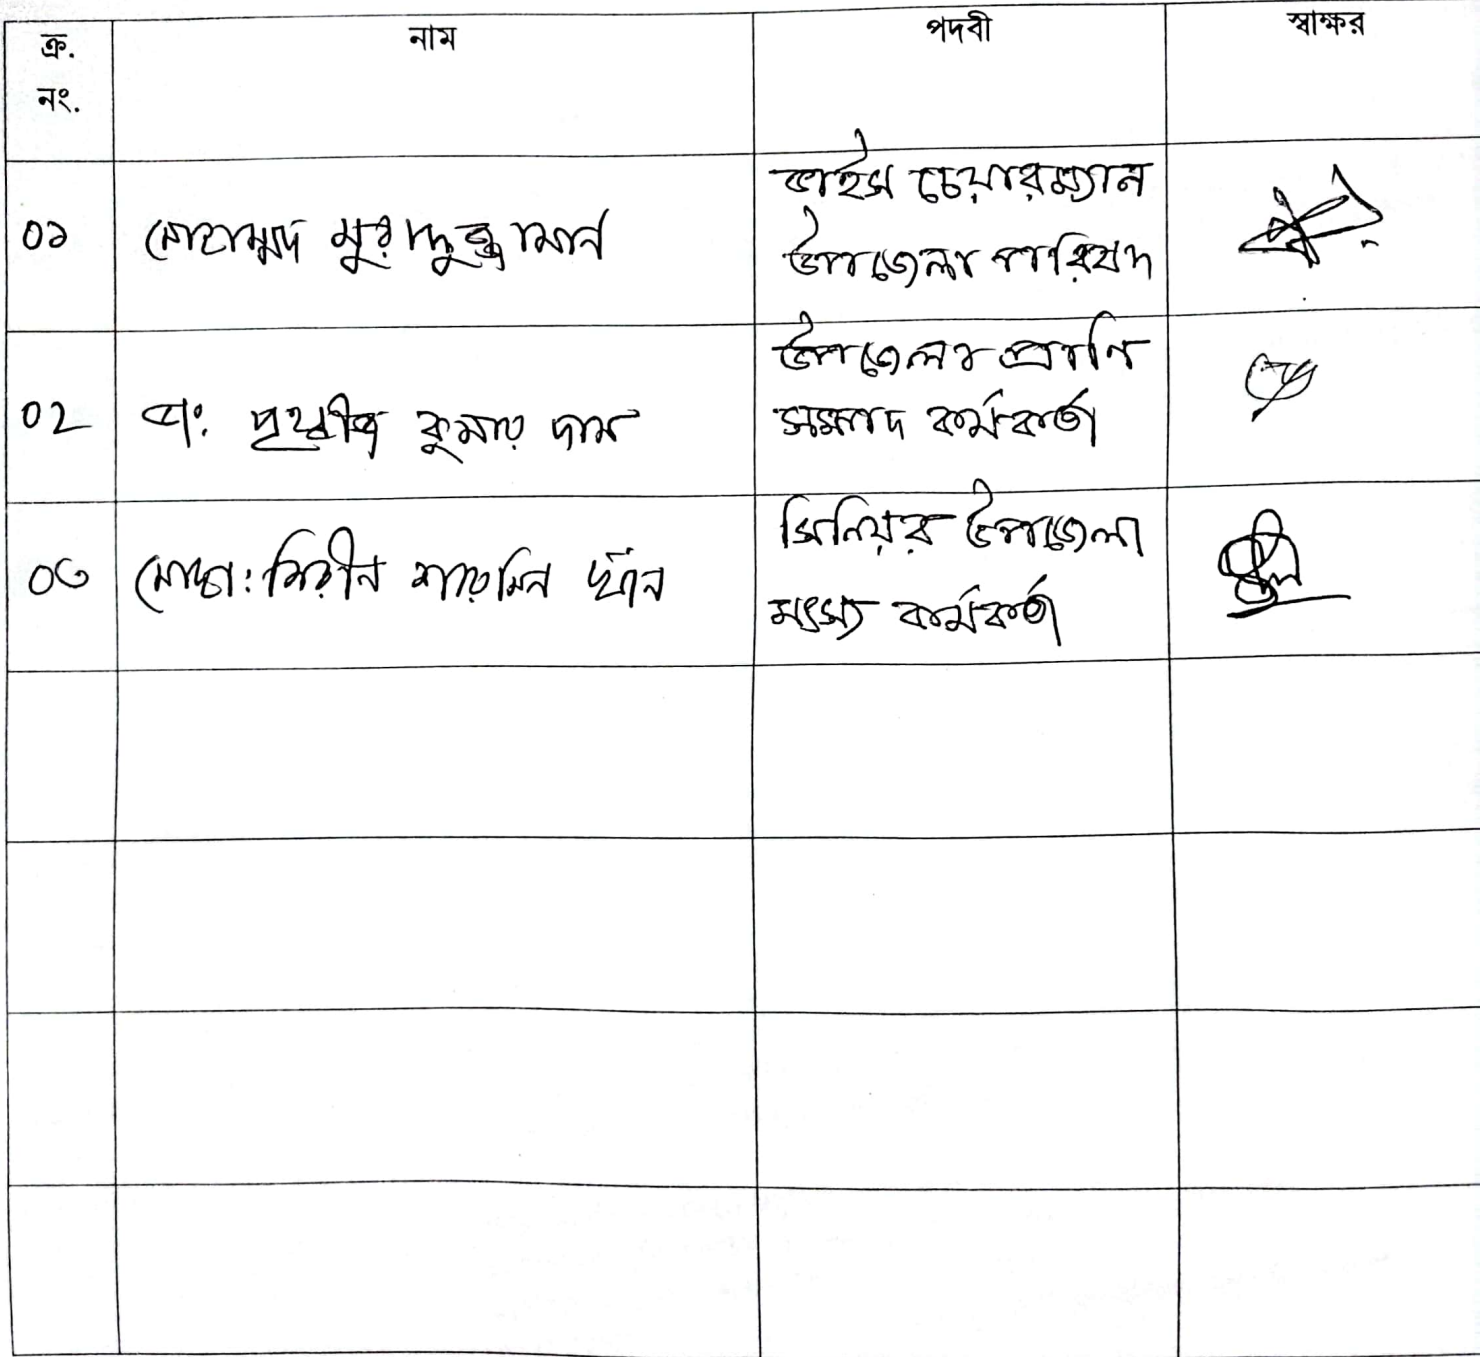 ক্র. নং. নাম পদবী স্বাক্ষর
০১ মোহাম্মদ মুরাদুজ্জামান ভাইস চেয়ারম্যান
উপজেলা পরিষদ
০২ ডা: কুমার দাস উপজেলা প্রাণি
সম্পদ কর্মকর্তা
০৩ মোছা: শিরীন শারমিন খাঁন সিনিয়র উপজেলা
মৎস্য কর্মকর্তা